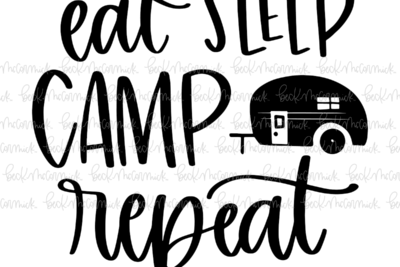 eat SLEEP
CAMP
repeat